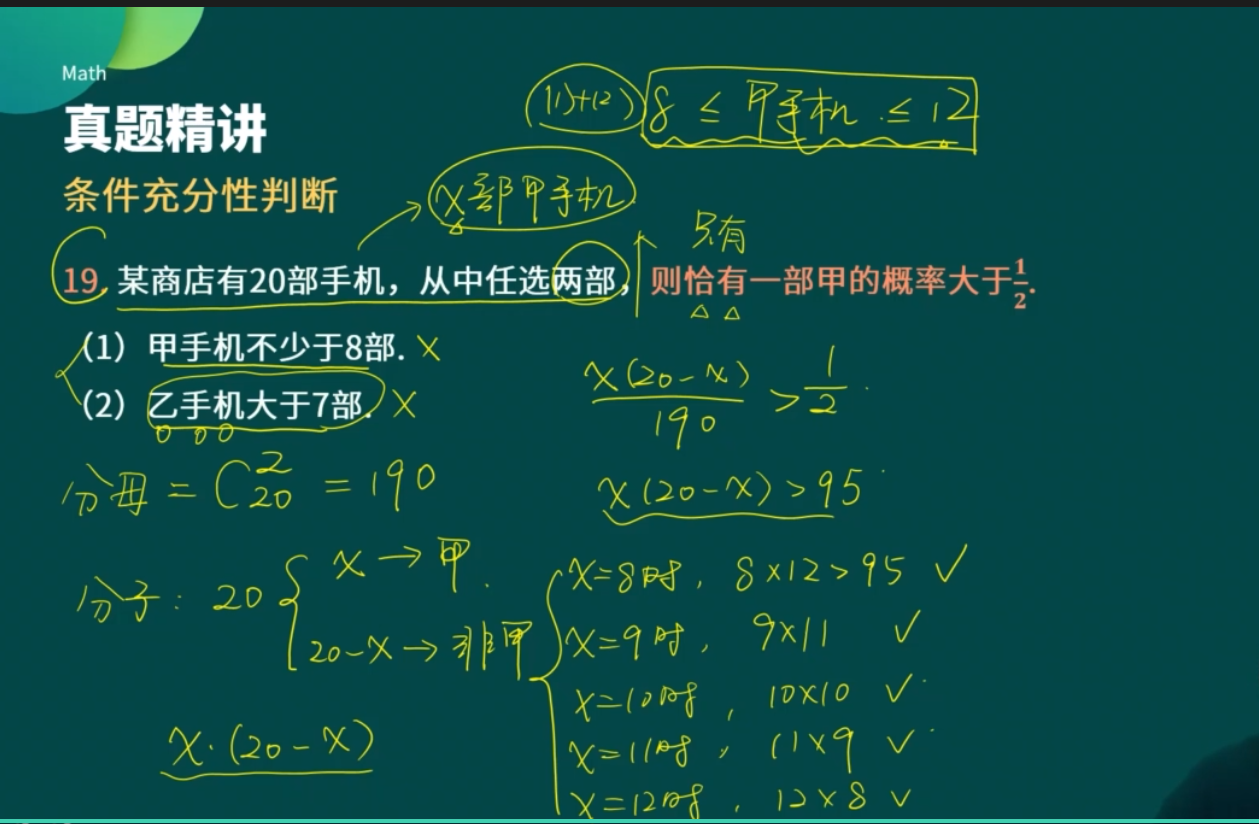 Math
真题精讲
(1)+(2) 8 ≤ 甲手机 ≤ 12
条件充分性判断
x部甲手机
只有
19. 某商店有20部手机，从中任选两部，则恰有一部甲的概率大于1/2.
（1）甲手机不少于8部. ×
（2）乙手机大于7部. ×
x(20-x)/190 > 1/2
分母 = C²₂₀ = 190
x(20-x) > 95
分子: 20 { x → 甲.
20-x → 非甲
x·(20-x)
x=8时, 8×12>95 ✓
x=9时, 9×11 ✓
x=10时, 10×10 ✓
x=11时, 11×9 ✓
x=12时, 12×8 ✓